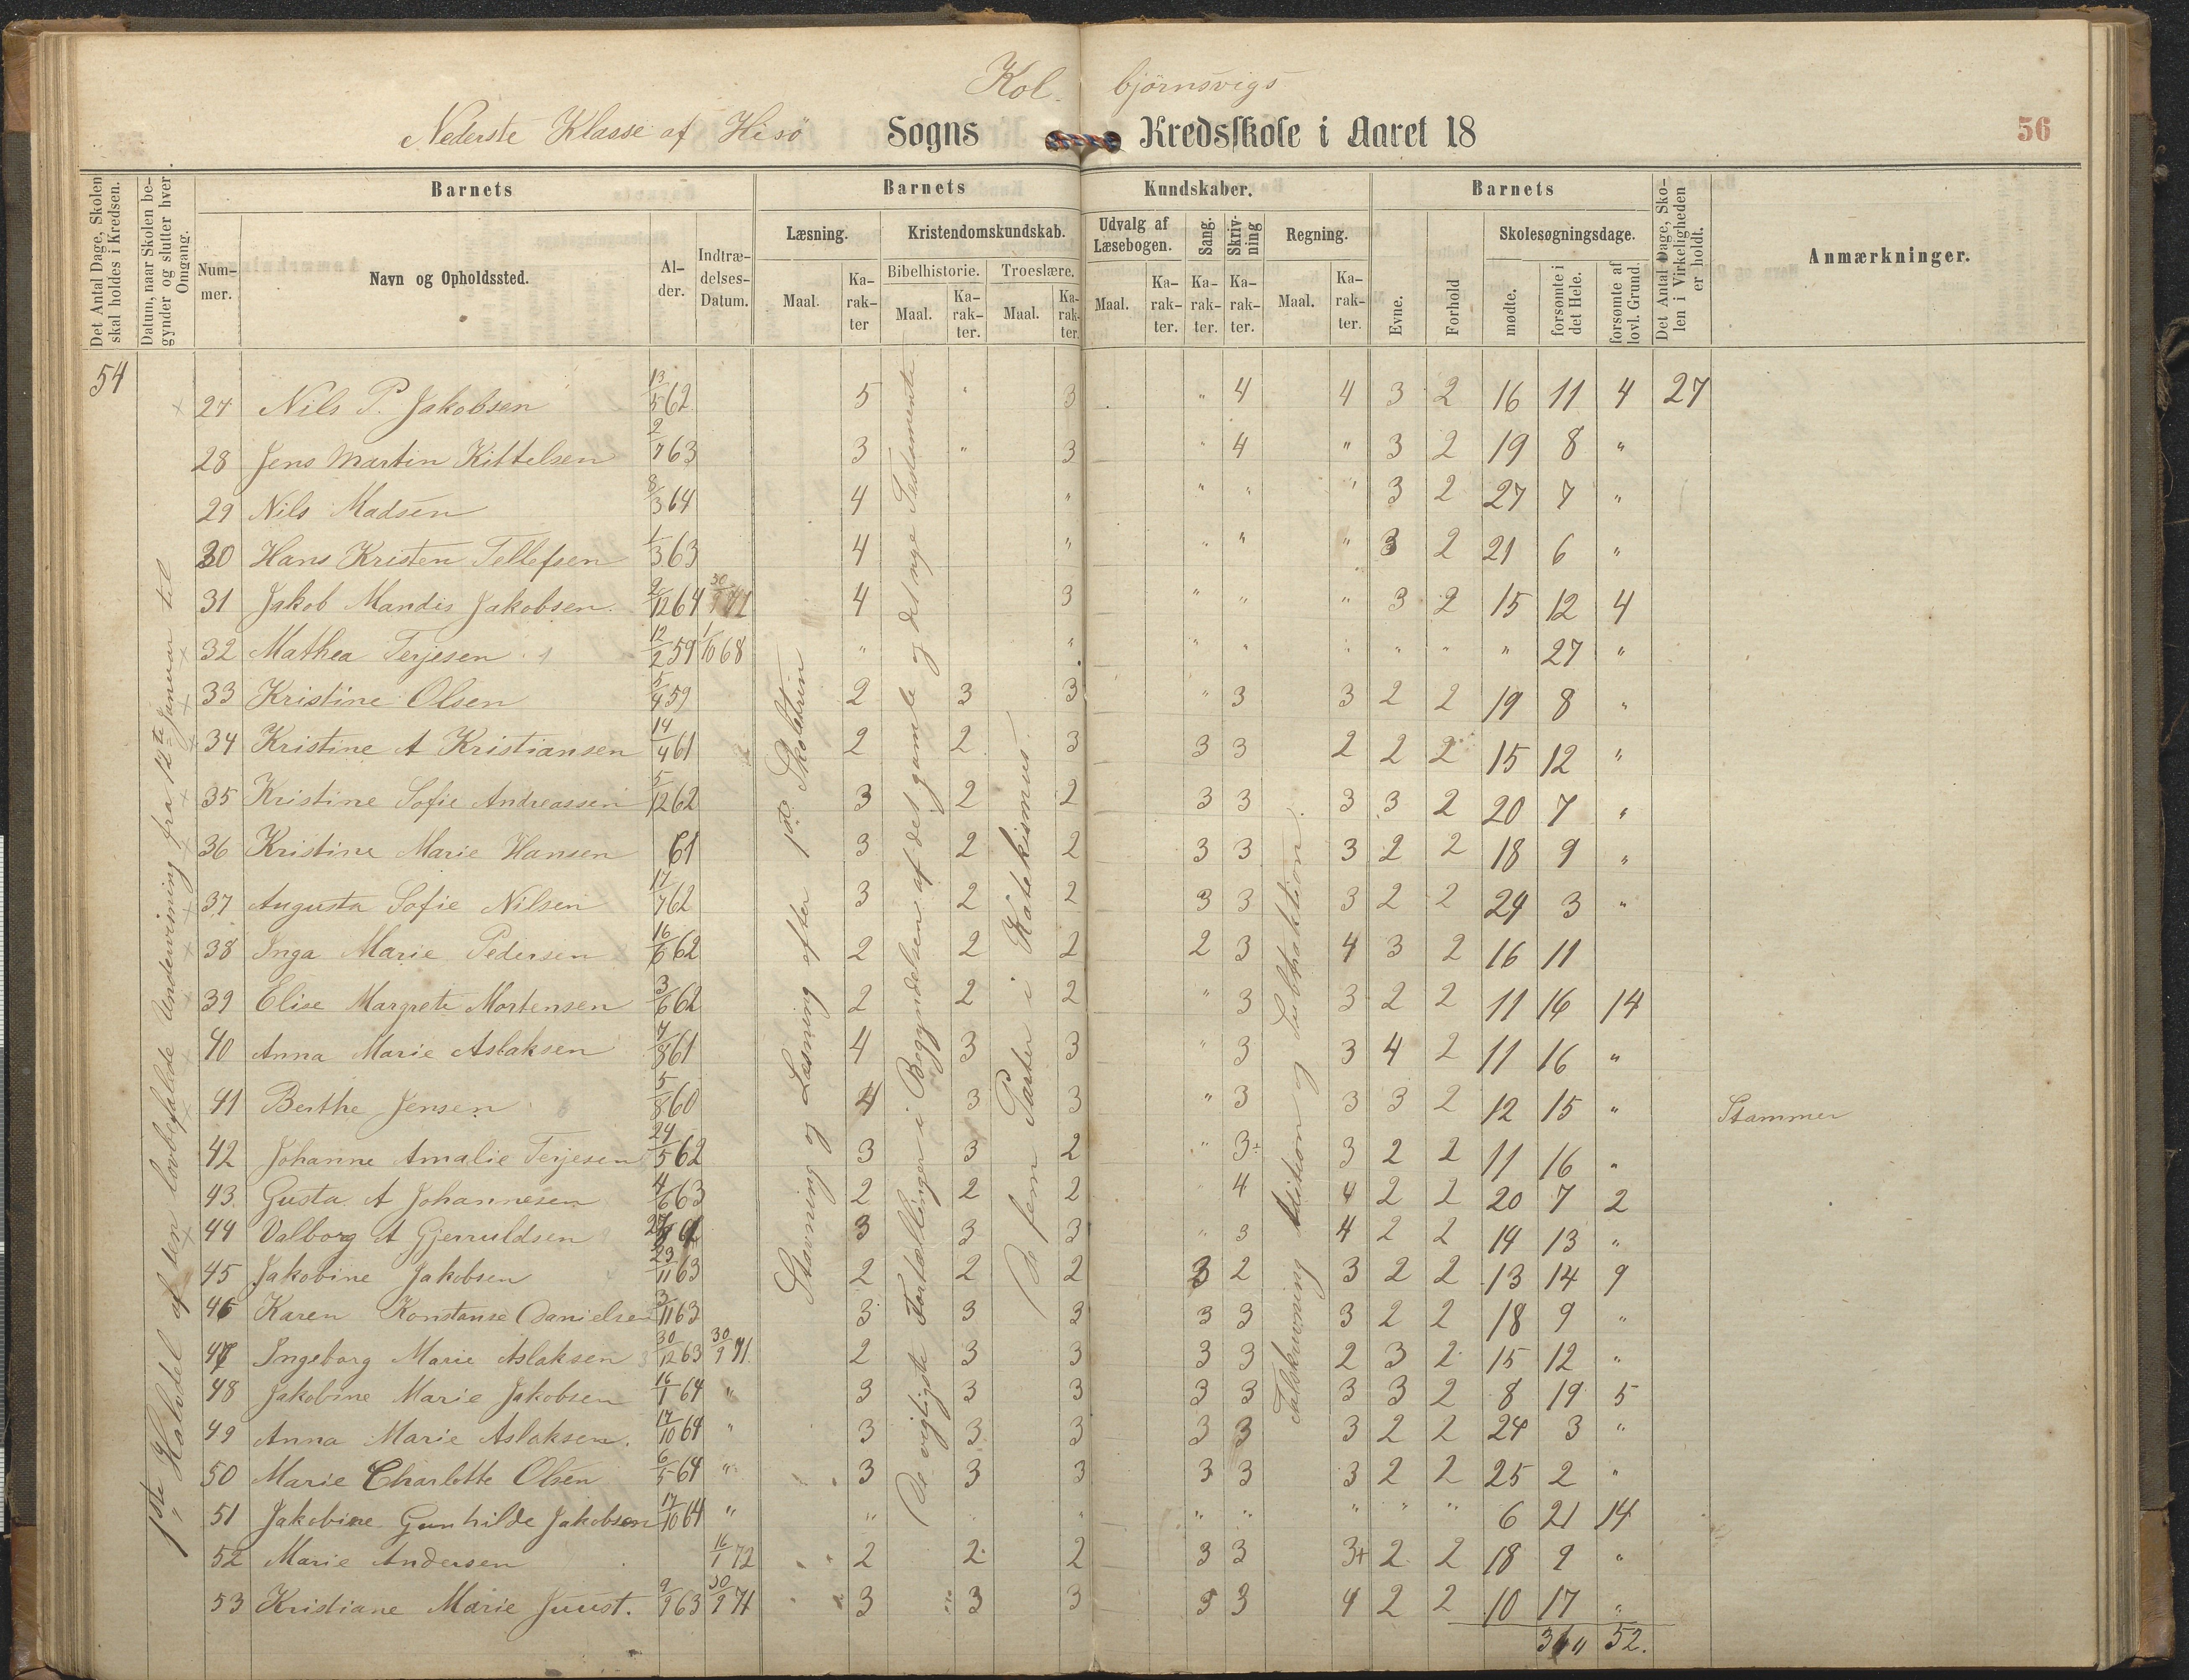 Kol. björnsvigs
Nederste Klasse af Hisö Sogns Kredsskole i Aaret 18
56
Det Antal Dage, Skolen skal holdes i Kredsen.
Datum, naar Skolen begynder og slutter hver Omgang.
Barnets
Nummer.
Navn og Opholdssted.
Alder.
Indtrædelses-Datum.
Barnets
Kundskaber.
Læsning.
Maal.
Karakter
Kristendomskundskab.
Bibelhistorie.
Maal.
Karakter.
Troeslære.
Maal.
Karakter.
Udvalg af Læsebogen.
Maal.
Karakter.
Sang.
Karakter.
Skrivning
Karakter.
Regning.
Maal.
Karakter.
Barnets
Evne.
Forhold
Skolesøgningsdage.
mødte.
forsømte i det Hele.
forsømte af lovl. Grund.
Det Antal Dage, Skolen i Virkeligheden er holdt.
Anmærkninger.
54
1ste Halvdel af den lovbefalede Undervisning fra 12te Januar til
Stavning og Læsning efter 1ste Skoletrin
De vigtigste Fortællinger i Begyndelsen af det gamle og det nye Testamente
De fem Parter i Katekismus.
Talskrivning Adition og Subtraktion.
27 Nils P. Jakobsen 13/5 62 5 " 3 " 4 4 3 2 16 11 4 27
28 Jens Martin Kittelsen 2/7 63 3 " 3 " 4 " 3 2 19 8 "
29 Nils Madsen 8/3 64 4 " " " " 3 2 27 7 "
30 Hans Kristen Tellefsen 1/3 63 4 " " " " 3 2 21 6 "
31 Jakob Mandis Jakobsen. 2/12 64 30/9 71 4 3 " " " 3 2 15 12 4
32 Mathea Terjesen 12/2 59 1/10 68 " " " " " " " " 27 "
33 Kristine Olsen 5/4 59 2 3 3 " 3 3 2 2 19 8 "
34 Kristine A Kristiansen 14/4 61 2 2 3 3 3 2 2 2 15 12 "
35 Kristine Sofie Andreassen 5/12 62 3 2 2 3 3 3 3 2 20 7 "
36 Kristine Marie Hansen 61 3 2 2 3 3 3 2 2 18 9 "
37 Augusta Sofie Nilsen 17/7 62 3 2 2 3 3 3 2 2 24 3 "
38 Inga Marie Pedersen 16/6 62 2 2 2 2 3 4 3 2 16 11
39 Elise Margrete Mortensen 3/6 62 2 2 2 " 3 3 2 2 11 16 14
40 Anna Marie Aslaksen 4/8 61 4 3 3 " 3 3 4 2 11 16 "
41 Berthe Jensen 5/8 60 4 3 3 " 3 3 3 2 12 15 " Stammer
42 Johanne Amalie Terjesen 24/5 62 3 3 2 " 3÷ 3 2 2 11 16 "
43. Gusta A Johannesen 4/6 63 2 2 2 4 4 2 2 20 7 2
44 Valborg A Gjerruldsen 3 3 3 " 3 4 2 2 14 13 "
45 Jakobine Jakobsen 23/11 63 2 2 2 3 2 3 2 2 13 14 9
46 Karen Konstanse Danielsen 3/11 63 3 3 3 3 3 3 2 2 18 9 "
47 Ingeborg Marie Aslaksen 30/12 63 30/9 71. 2 3 3 3 3 2 3 2 15 12 "
48 Jakobine Marie Jakobsen 16/1 64 " 3 3 3 3 3 3 3 2 8 19 5
49 Anna Marie Aslaksen. 17/10 64 " 3 3 3 3 3 3 2 2 24 3 "
50 Marie Charlotte Olsen 6/5 64 " 3 3 3 3 3 3 2 2 25 2 "
51 Jakobine Gunhilde Jakobsen 17/10 64 " " " " " " " " 6 21 14
52 Marie Andersen 16/1 72 2 2 2 3 3 3+ 2 2 18 9 "
53 Kristiane Marie Juust. 9/9 63 30/9 71 3 3 3 3 3 4 2 2 10 17 "
52.